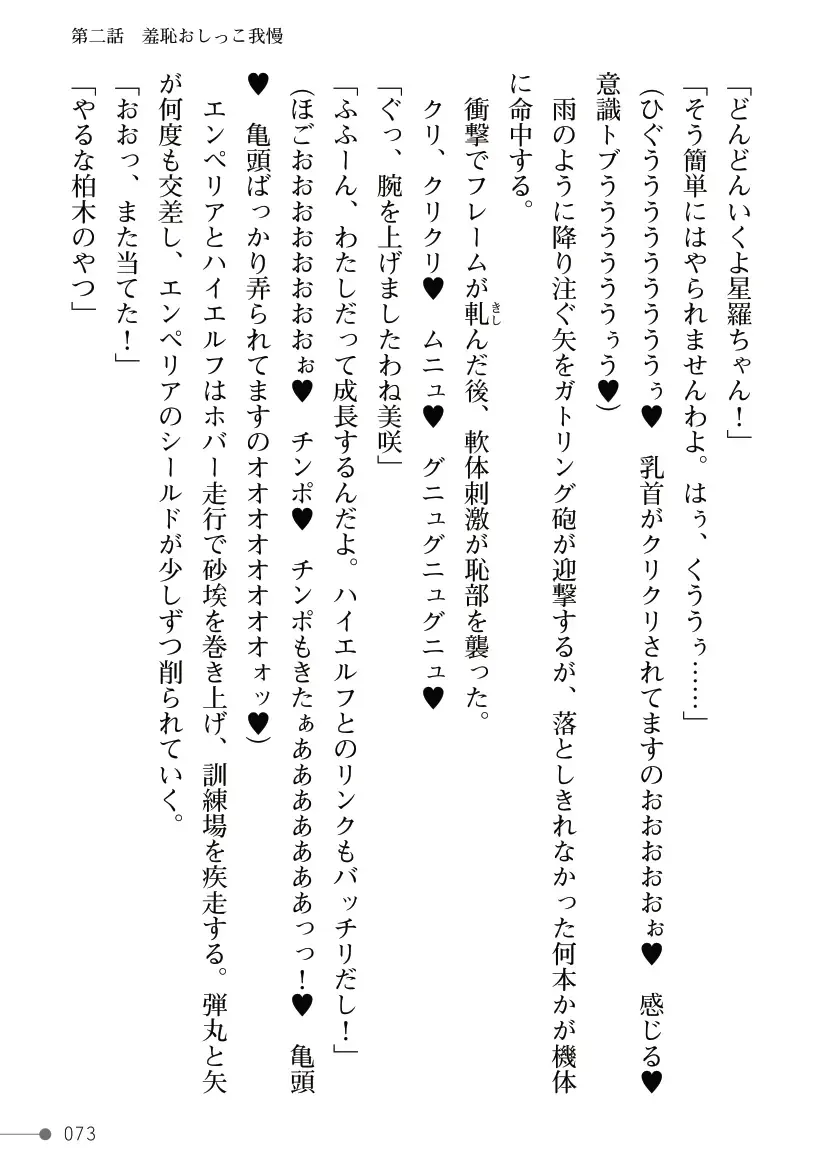 第二話　羞恥おしっこ我慢
「どんどんいくよ星羅ちゃん！」
「そう簡単にはやられませんわよ。はぅ、くううぅ……」
(ひぐうううううううううぅ♥　乳首がクリクリされてますのおおおおおぉ♥　感じる♥
意識トブうううううううぅう♥)
　雨のように降り注ぐ矢をガトリング砲が迎撃するが、落としきれなかった何本かが機体
に命中する。
　衝撃でフレームが軋んだ後、軟体刺激が恥部を襲った。
　クリ、クリクリ♥　ムニュ♥　グニュグニュグニュ♥
「ぐっ、腕を上げましたわね美咲」
「ふふーん、わたしだって成長するんだよ。ハイエルフとのリンクもバッチリだし！」
(ほごおおおおおおおおぉ♥　チンポ♥　チンポもきたぁああああああああっっ！♥　亀頭
♥　亀頭ばっかり弄られてますのオオオオオオオオオォッ♥)
　エンペリアとハイエルフはホバー走行で砂埃を巻き上げ、訓練場を疾走する。弾丸と矢
が何度も交差し、エンペリアのシールドが少しずつ削られていく。
「おおっ、また当てた！」
「やるな柏木のやつ」
073